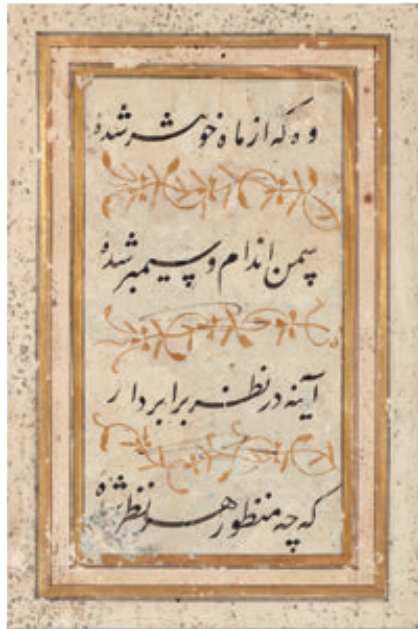 وه که از ماه خوشتر شدهٔ
سمن اندام و سیمبر شدهٔ
آینه در نظر برابر دار
که چه منظور هر نظر شدهٔ